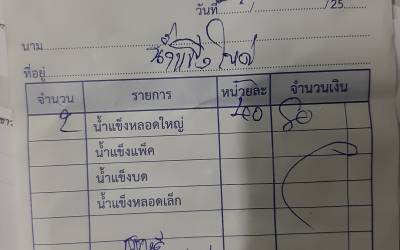 วันที่ / /25
นาม น้ำแข็งใหญ่
ที่อยู่
จำนวน รายการ หน่วยละ จำนวนเงิน
2 น้ำแข็งหลอดใหญ่ 40 80
น้ำแข็งแพ็ค
น้ำแข็งบด
น้ำแข็งหลอดเล็ก